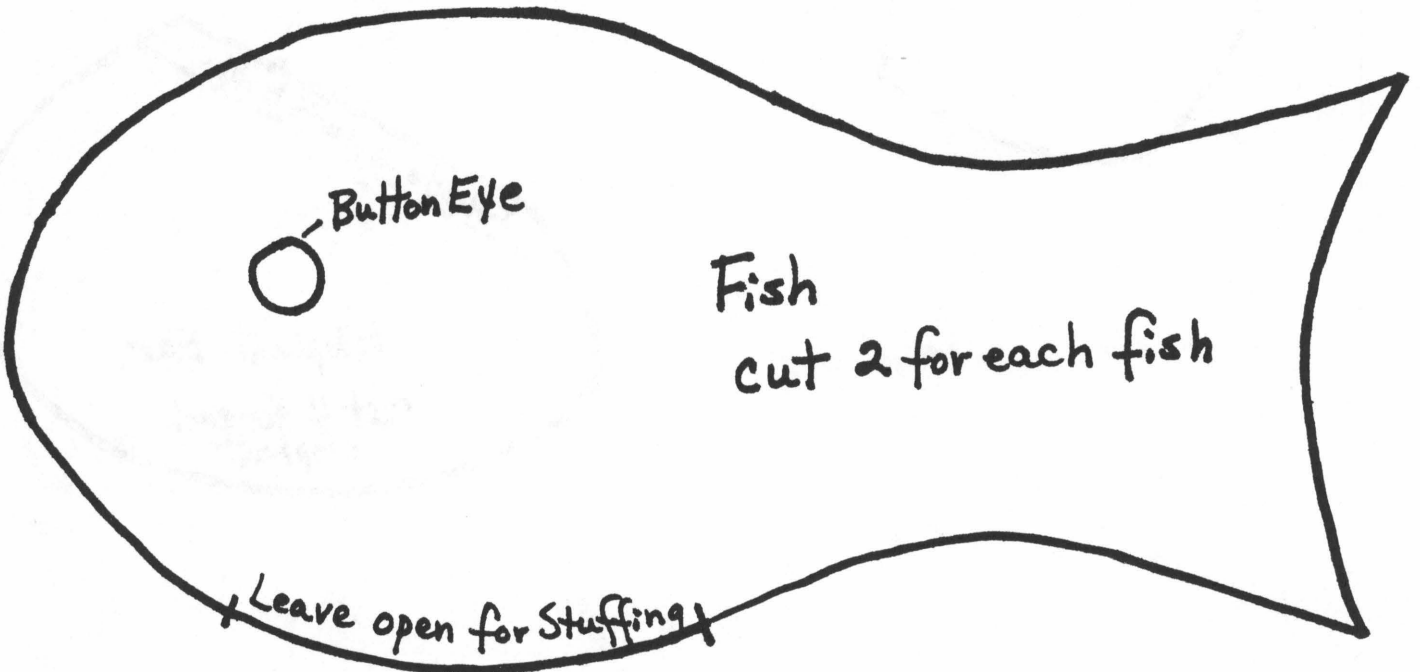 Button Eye
Fish
cut 2 for each fish
Leave open for Stuffing